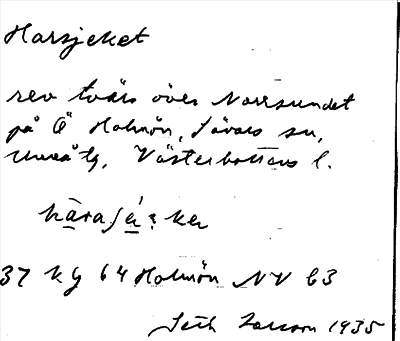 Harsjeket
rev tvärs över Norrsundet
på Ö Holmön, Sävars sn,
Umeå tg, Västerbottens l.
37 Kg 64 Holmön NV b3
Seth Larsson 1935